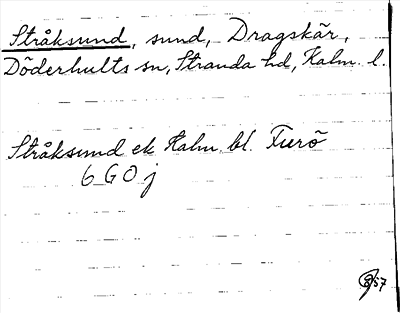 Stråksund, sund, Dragskär,
Döderhults sn, Stranda hd, Kalm. l.
Stråksund ek Kalm. bl. Furö
6 G O j